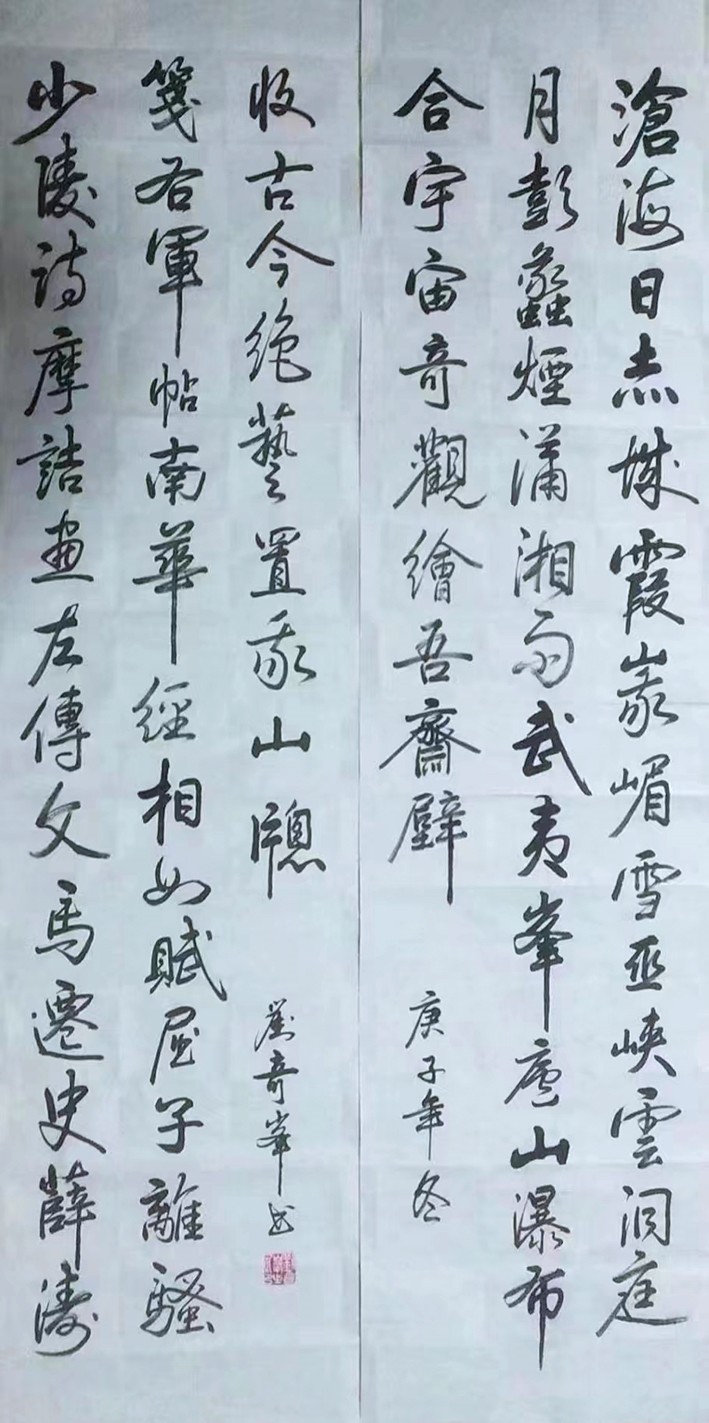 滄海日赤城霞峩嵋雪巫峽雲洞庭
月彭蠡煙瀟湘雨武夷峯廬山瀑布
合宇宙奇觀繪吾齋壁
庚子年冬
少陵詩摩詰畫左傳文馬遷史薛濤
箋右軍帖南華經相如賦屈子離騷
收古今絕藝置我山牕
劉奇峯書